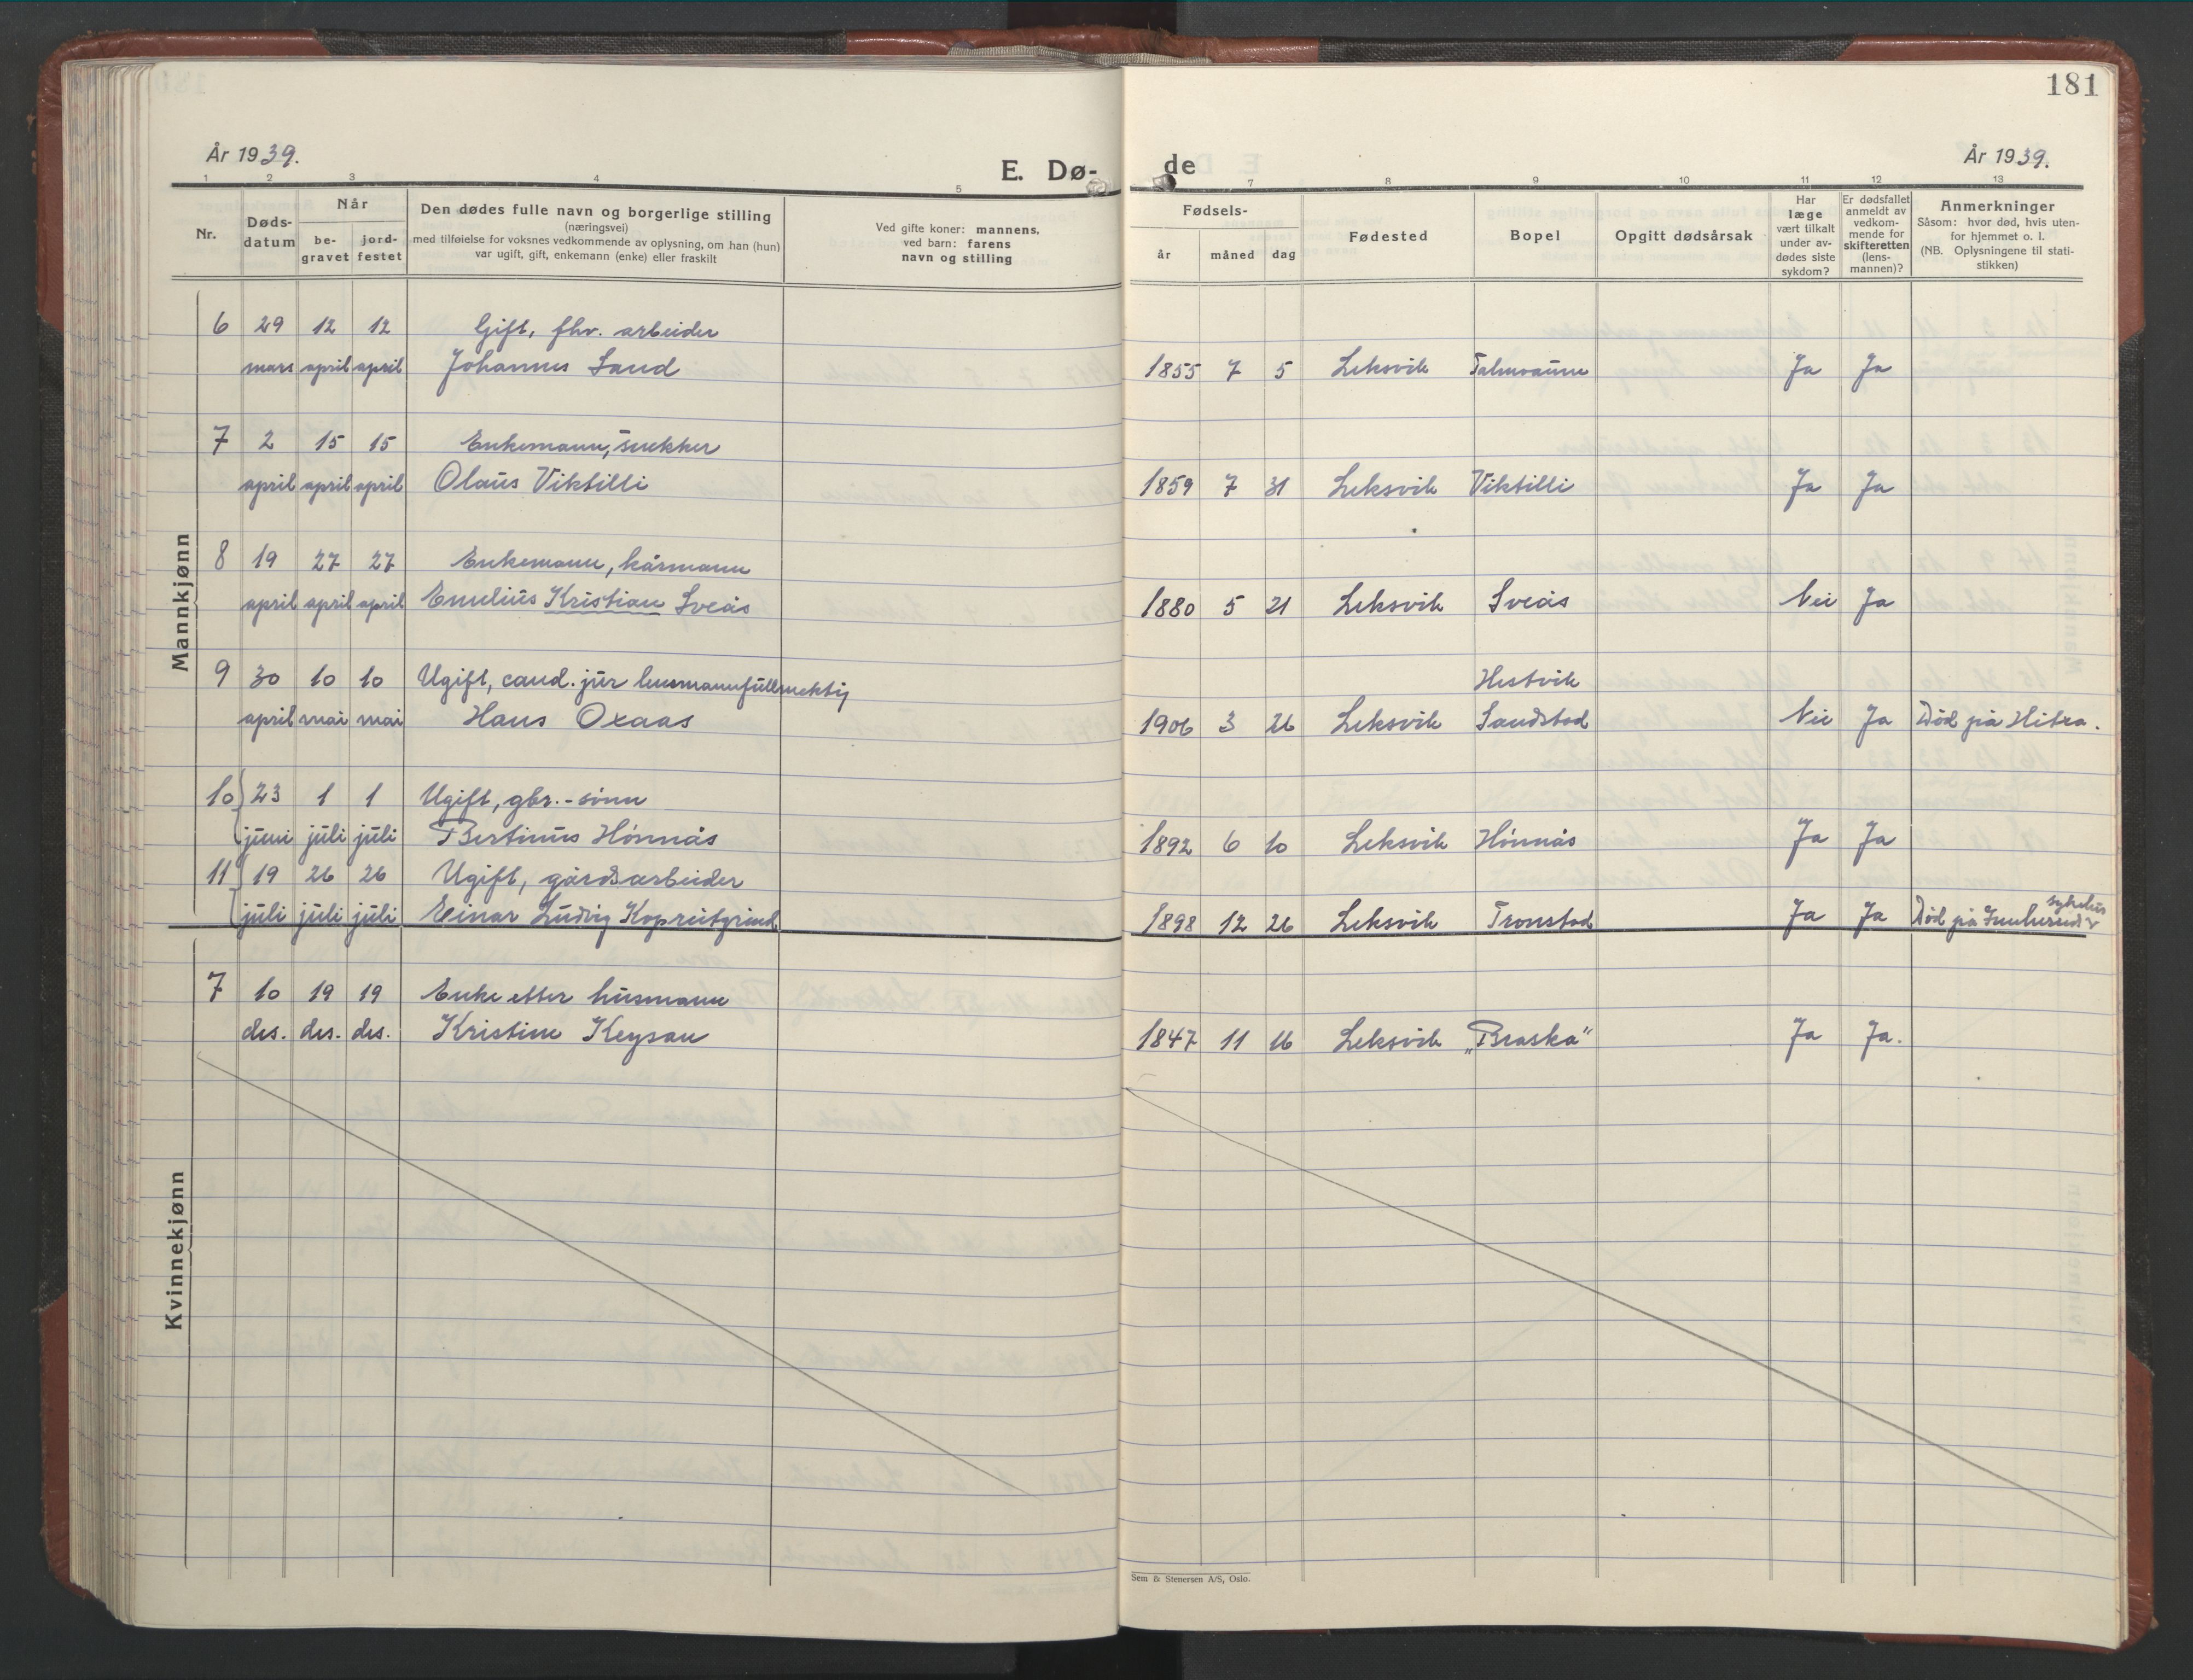 181
År 1939.
E. Dø-
de
År 1939.
1 2 3 4 5 7 8 9 10 11 12 13
Nr.
Døds-
datum
Når
be-
gravet
jord-
festet
Den dødes fulle navn og borgerlige stilling
(næringsvei)
med tilføielse for voksnes vedkommende av oplysning, om han (hun)
var ugift, gift, enkemann (enke) eller fraskilt
Ved gifte koner: mannens,
ved barn: farens
navn og stilling
Fødsels-
år måned dag
Fødested
Bopel
Opgitt dødsårsak
Har
læge
vært tilkalt
under av-
dødes siste
sykdom?
Er dødsfallet
anmeldt av
vedkom-
mende for
skifteretten
(lens-
mannen)?
Anmerkninger
Såsom: hvor død, hvis uten-
for hjemmet o. l.
(NB. Oplysningene til stati-
stikken)
Mannkjønn
6 29 12 12 Gift, fhv. arbeider
mars april april Johannes Sand 1855 7 5 Leksvik Ja Ja
7 2 15 15 Enkemann, snekker
april april april Olaus Viktilli 1859 7 31 Leksvik Viktilli Ja Ja
8 19 27 27 Enkemann, kårmann
april april april Emelius Kristian Sveås 1880 5 21 Leksvik Sveås Nei Ja
9 30 10 10 Ugift, cand. jur lensmannfullmektig Hestvik
april mai mai Hans Oxaas 1906 3 26 Leksvik Sandstad Nei Ja Død på Hitra.
10 23 1 1 Ugift, gbr.-sønn
juni juli juli Bertinus Hønnås 1892 6 10 Leksvik Hønnås Ja Ja
11 19 26 26 Ugift, gårdsarbeider
sykehus
juli juli juli Einar Ludvig Kopreitgrind 1898 12 26 Leksvik Tronstad Ja Ja Død på Innherred
Kvinnekjønn
7 10 19 19 Enke etter husmann
des. des. des. Kristine Keysan 1847 11 16 Leksvik „Braska" Ja Ja.
Sem & Stenersen A/S, Oslo.